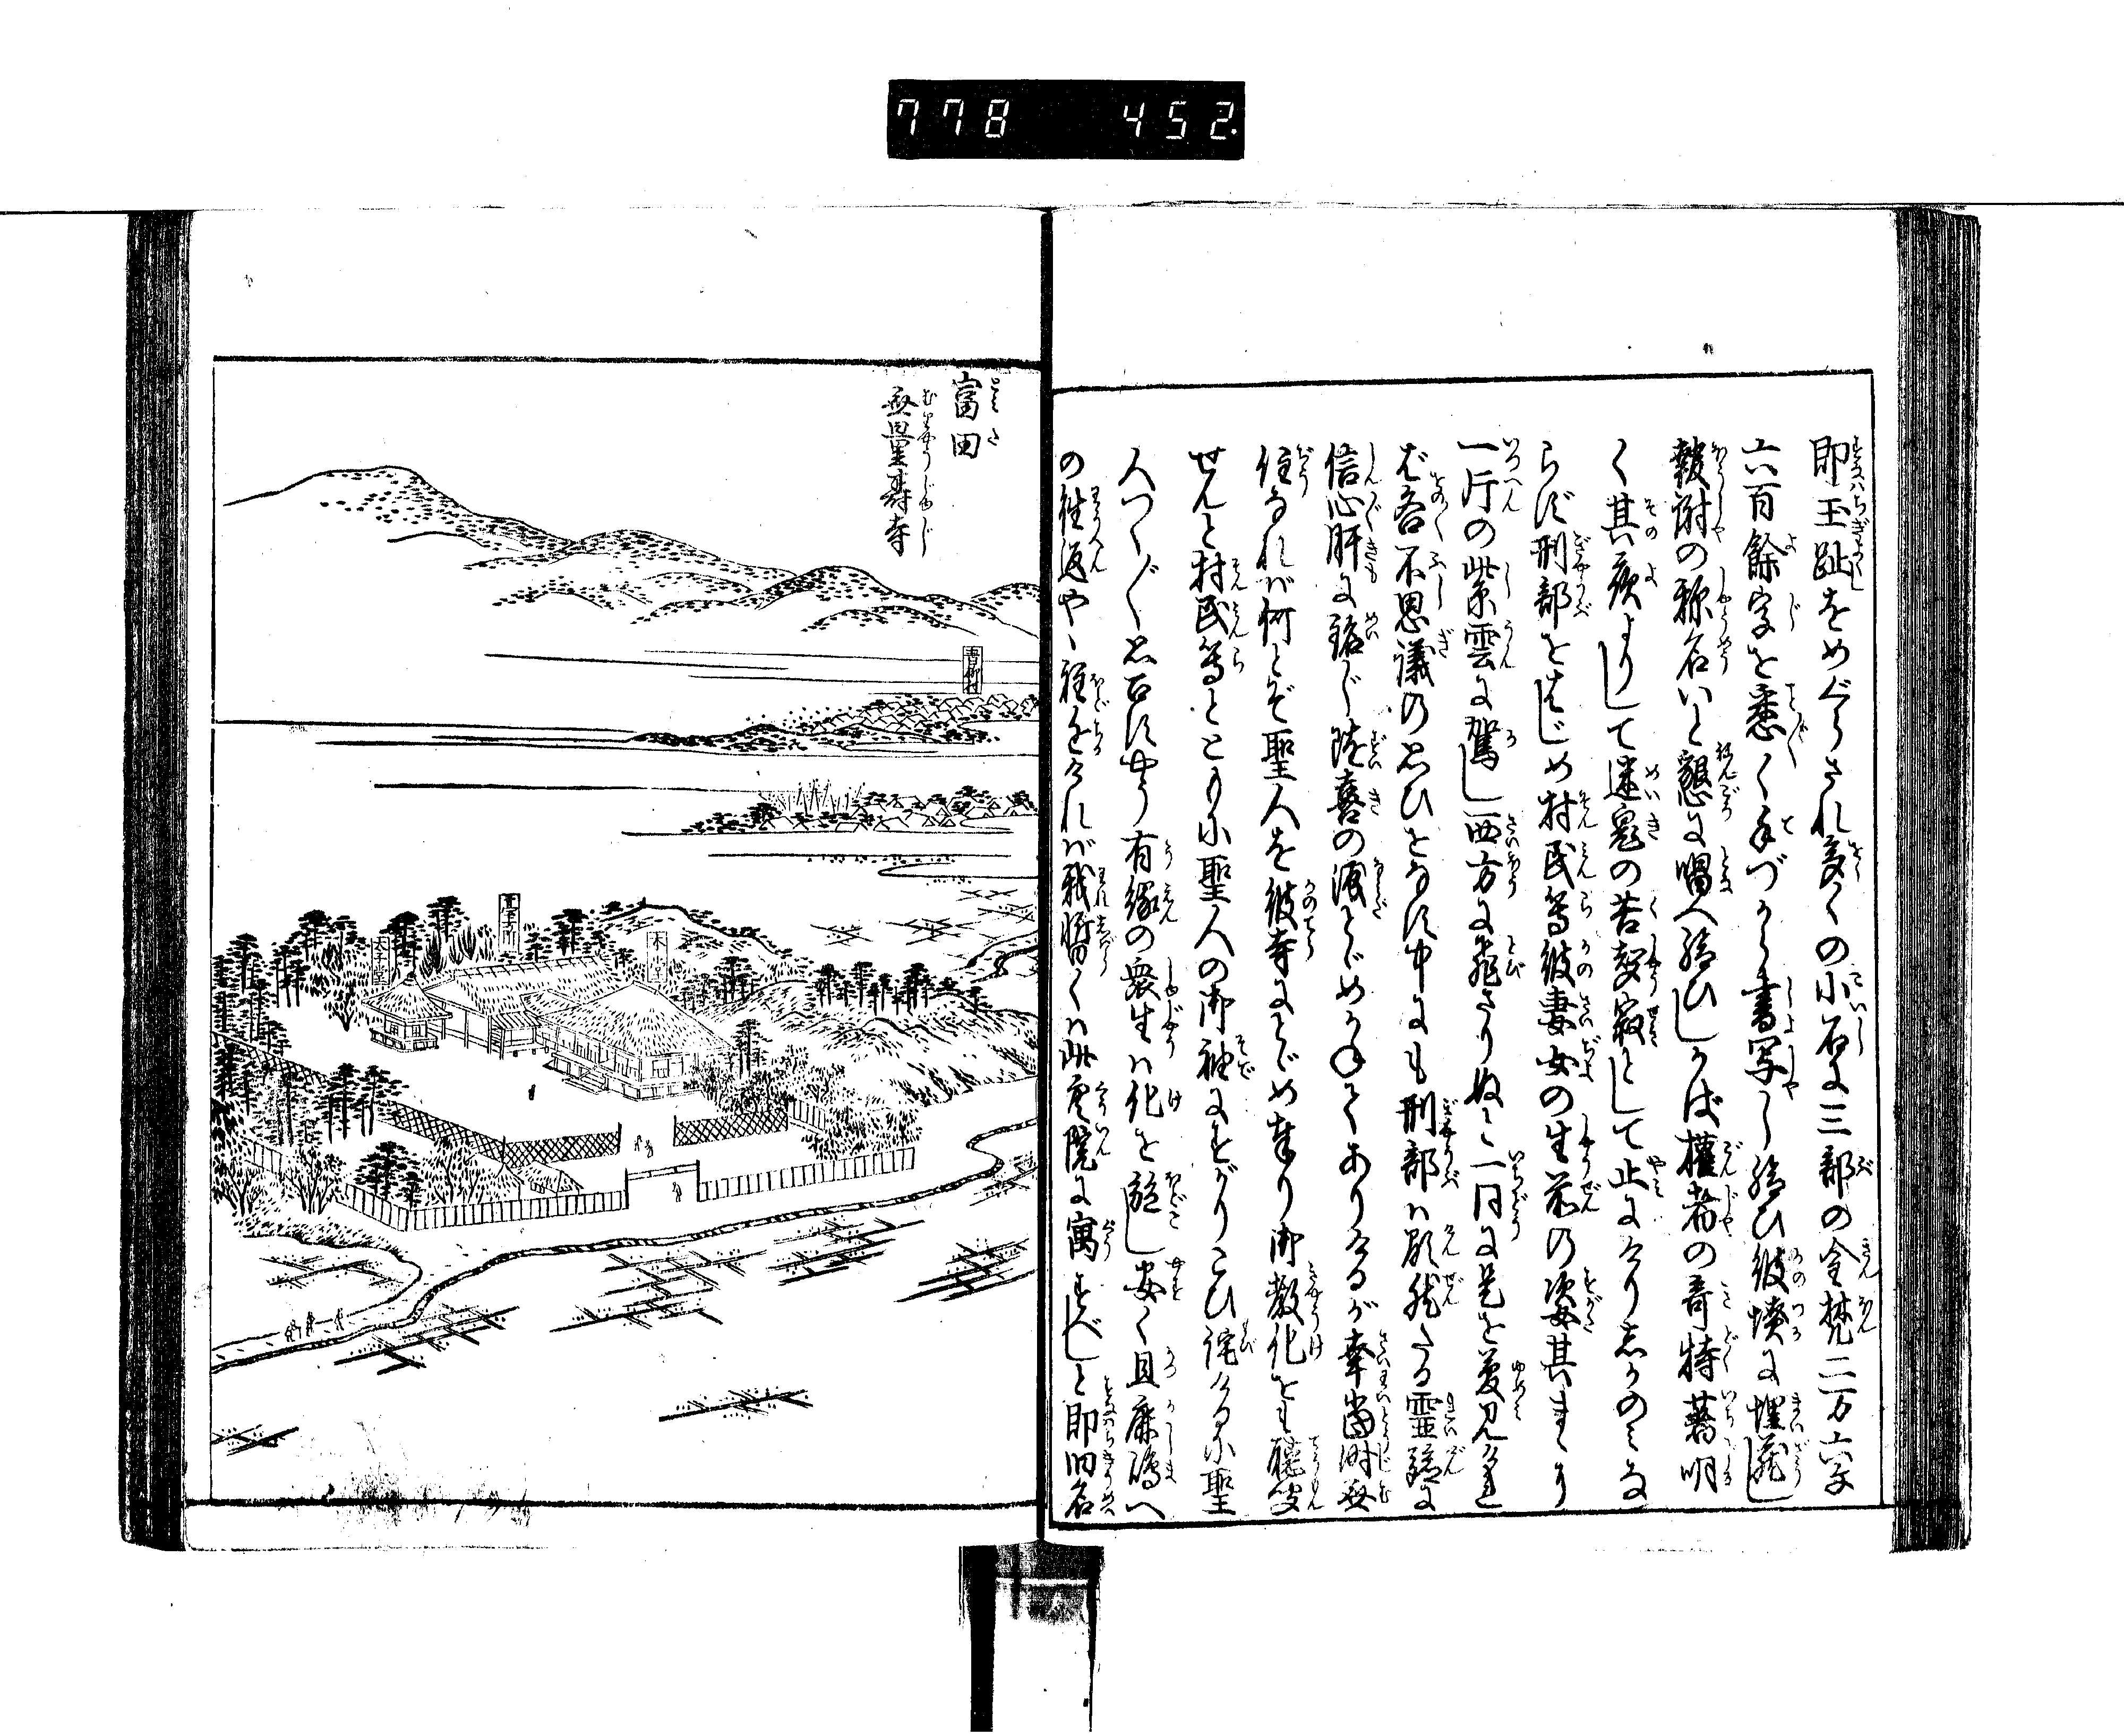 778 452.
即玉趾をめぐらされ多くの小石に三部の金梵二万六千
六百餘字を悉く手づから書写し給ひ彼墳に埋蔵し
報謝の称名いと懇に唱へ給ひしかば権者の奇特著明
く其夜よりして迷鬼の苦聲寂として止にけりしかのみな
らず刑部をはじめ村民等彼妻女の生前の姿其まゝに
一片の紫雲に駕し西方に飛さりぬと一同に是を夢見ければ
各不思議の思ひをなす中にも刑部は顕然たる霊験に
信心肝に銘じ随喜の涙とゞめかねてありけるが幸當時無
住なれば何とぞ聖人を彼寺にとゞめ奉り御教化をも聴聞
せんと村民等とともに聖人の御袖にすがりこひ侘けるに聖
人つく〴〵思召すやう有縁の衆生は化を施し安く且鹿嶋へ
の往返やゝ程近ければ我暫くは此寺院に寓すべしと即旧名
富田
無量壽寺
本堂
太子堂